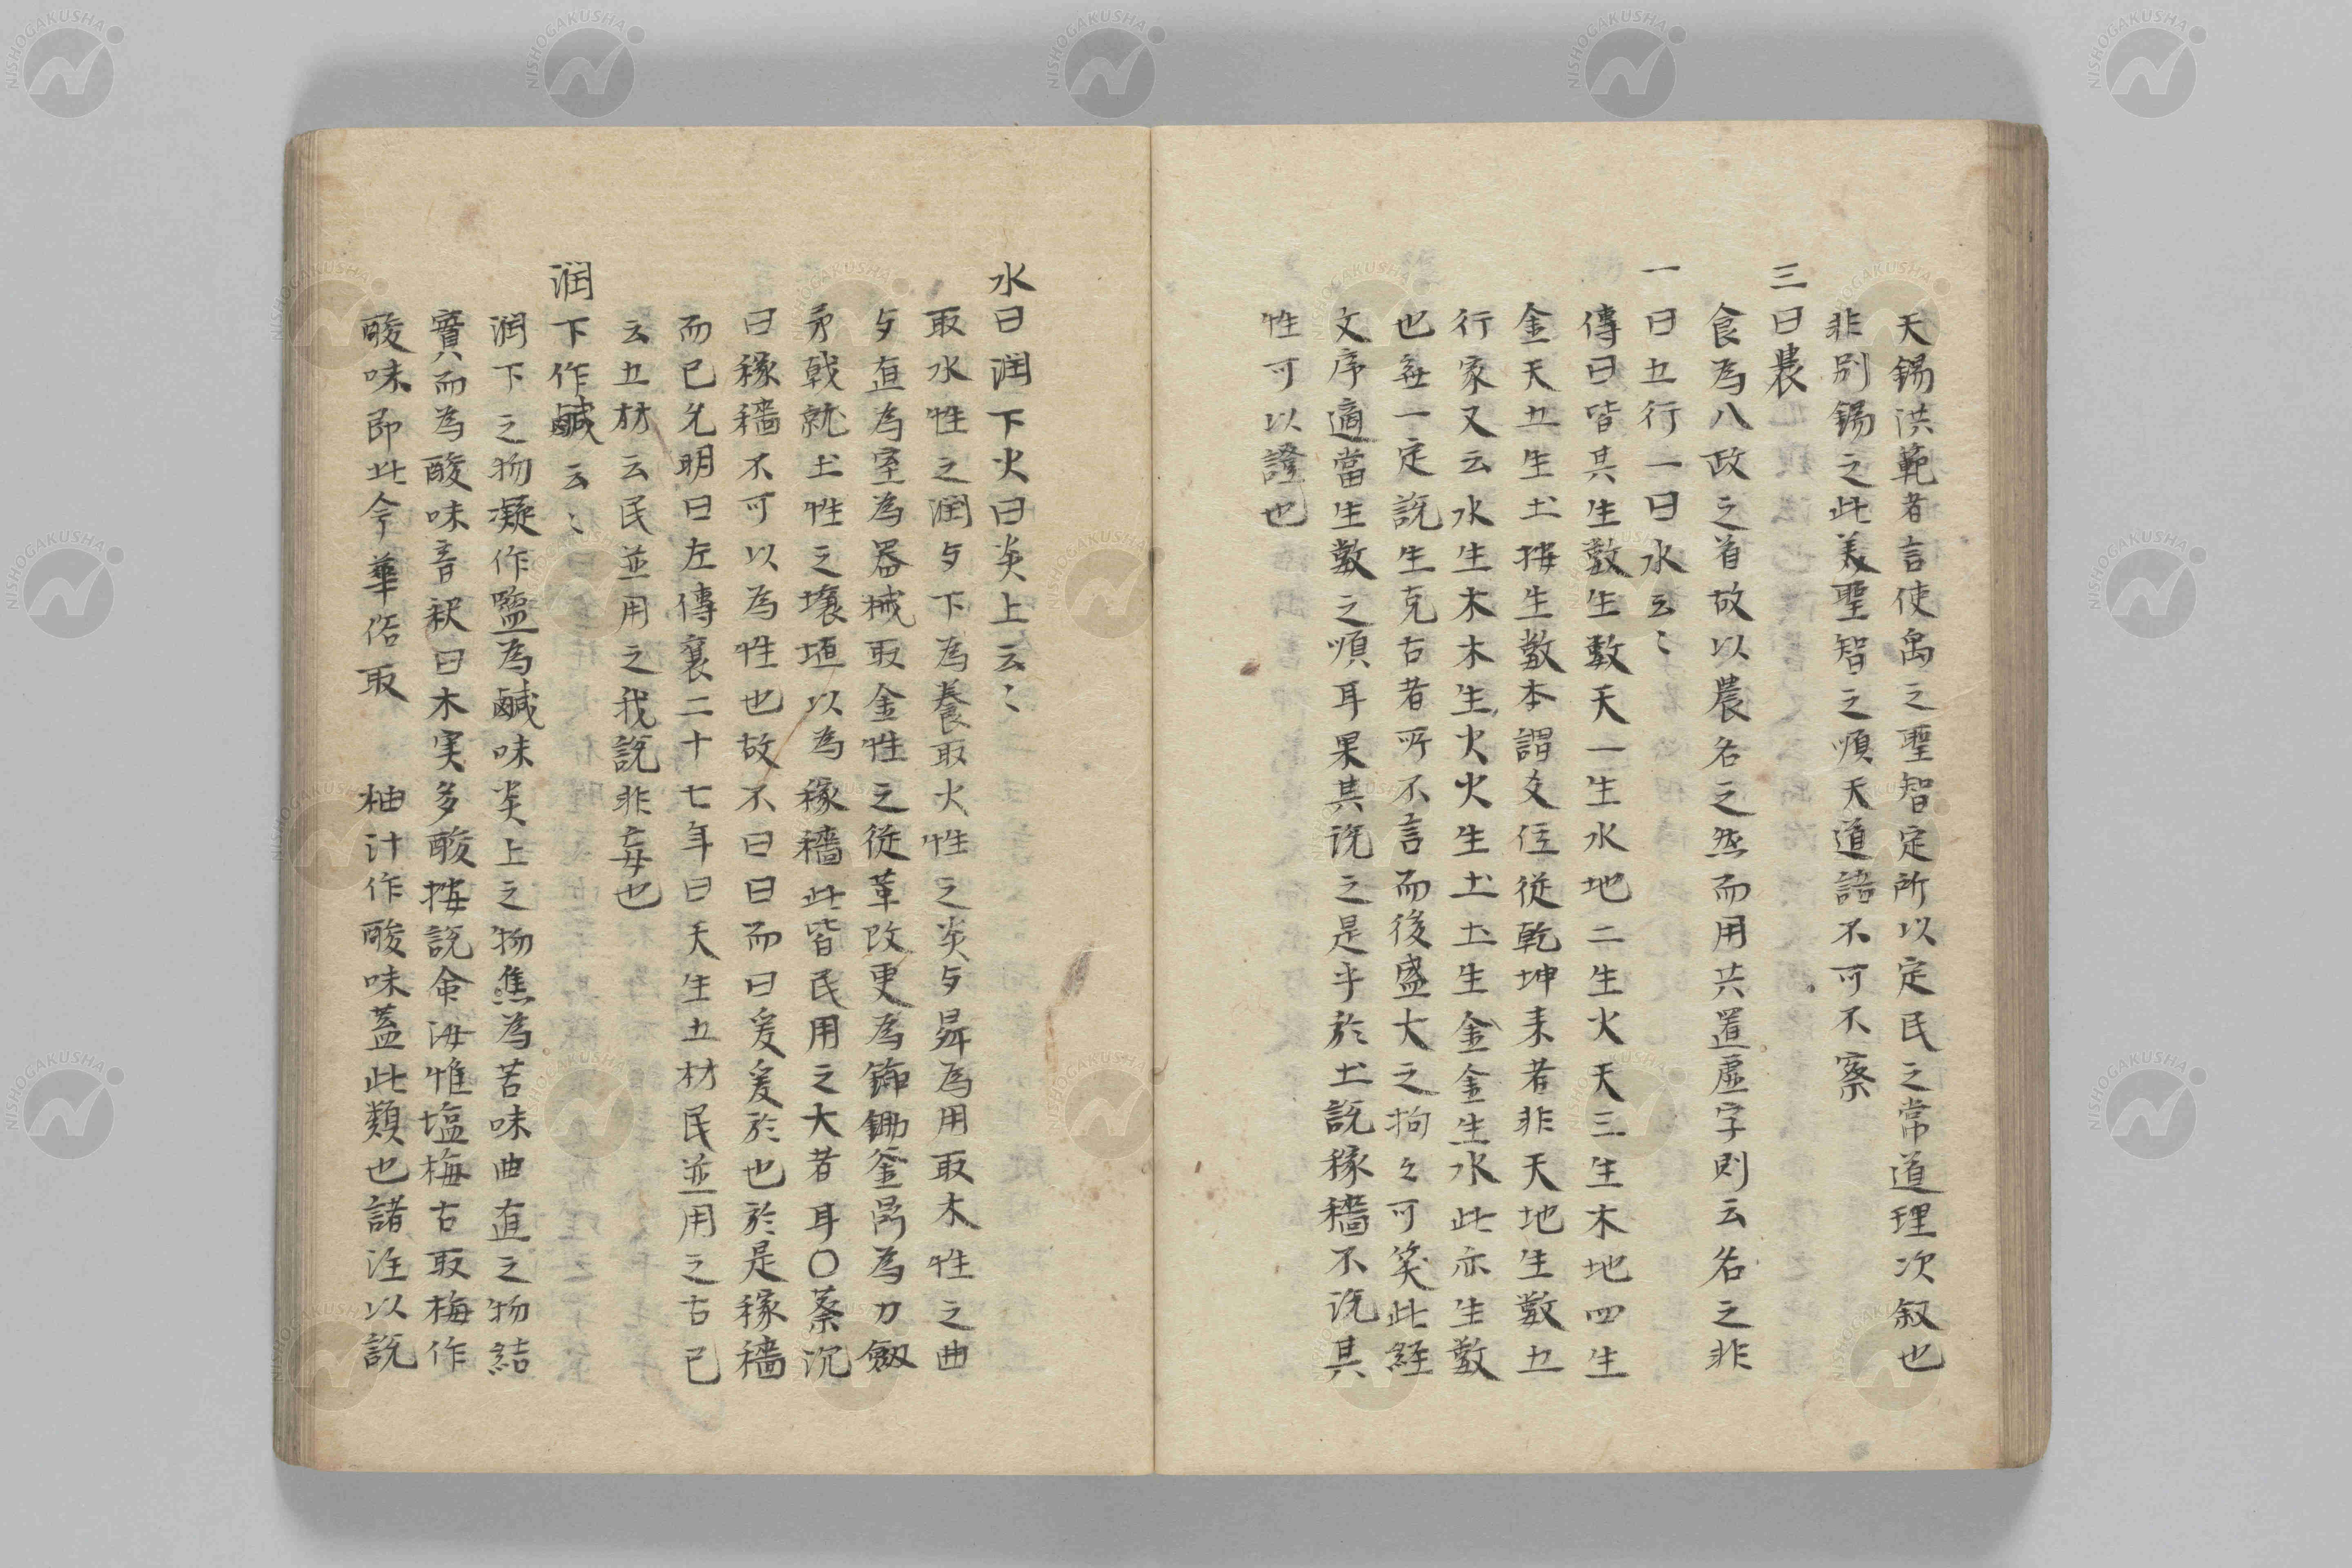 天錫洪範者言使禹之聖智定所以定民之常道理次叙也
非別錫之此美聖智之順天道語不可不察
三曰農
食為八政之首故以農名之然而用共置虛字則云名之非
一曰五行一曰水云〻
傳曰皆其生數生數天一生水地二生火天三生木地四生
金天五生土按生數本謂爻位從乾坤来者非天地生數五
行家又云水生木木生火火生土土生金金生水此亦生數
也每一定説生克古者所不言而後盛大之拘之可笑此經
文序適當生數之順耳果其説之是乎於土説稼穡不説其
性可以證也
水曰潤下火曰炎上云〻
取水性之潤与下為養取火性之炎与昇為用取木性之曲
与直為室為器械取金性之從革改更為鋤釜鬲為刀劔
矛戟就土性之壌垣以為稼穡此皆民用之大者耳〇蔡沉
曰稼穡不可以為性也故不曰曰而曰爰爰於也於是稼穡
而已允明曰左傳襄二十七年曰天生五材民並用之古已
云五材云民並用之我說非妄也
潤下作鹹云〻
潤下之物凝作鹽為鹹味炎上之物焦為苦味曲直之物結
實而為酸味音釈曰木実多酸按説命曰惟塩梅古取梅作
酸味即此今華俗取 柚汁作酸味蓋此類也諸注以説
NISHOGAKUSHA